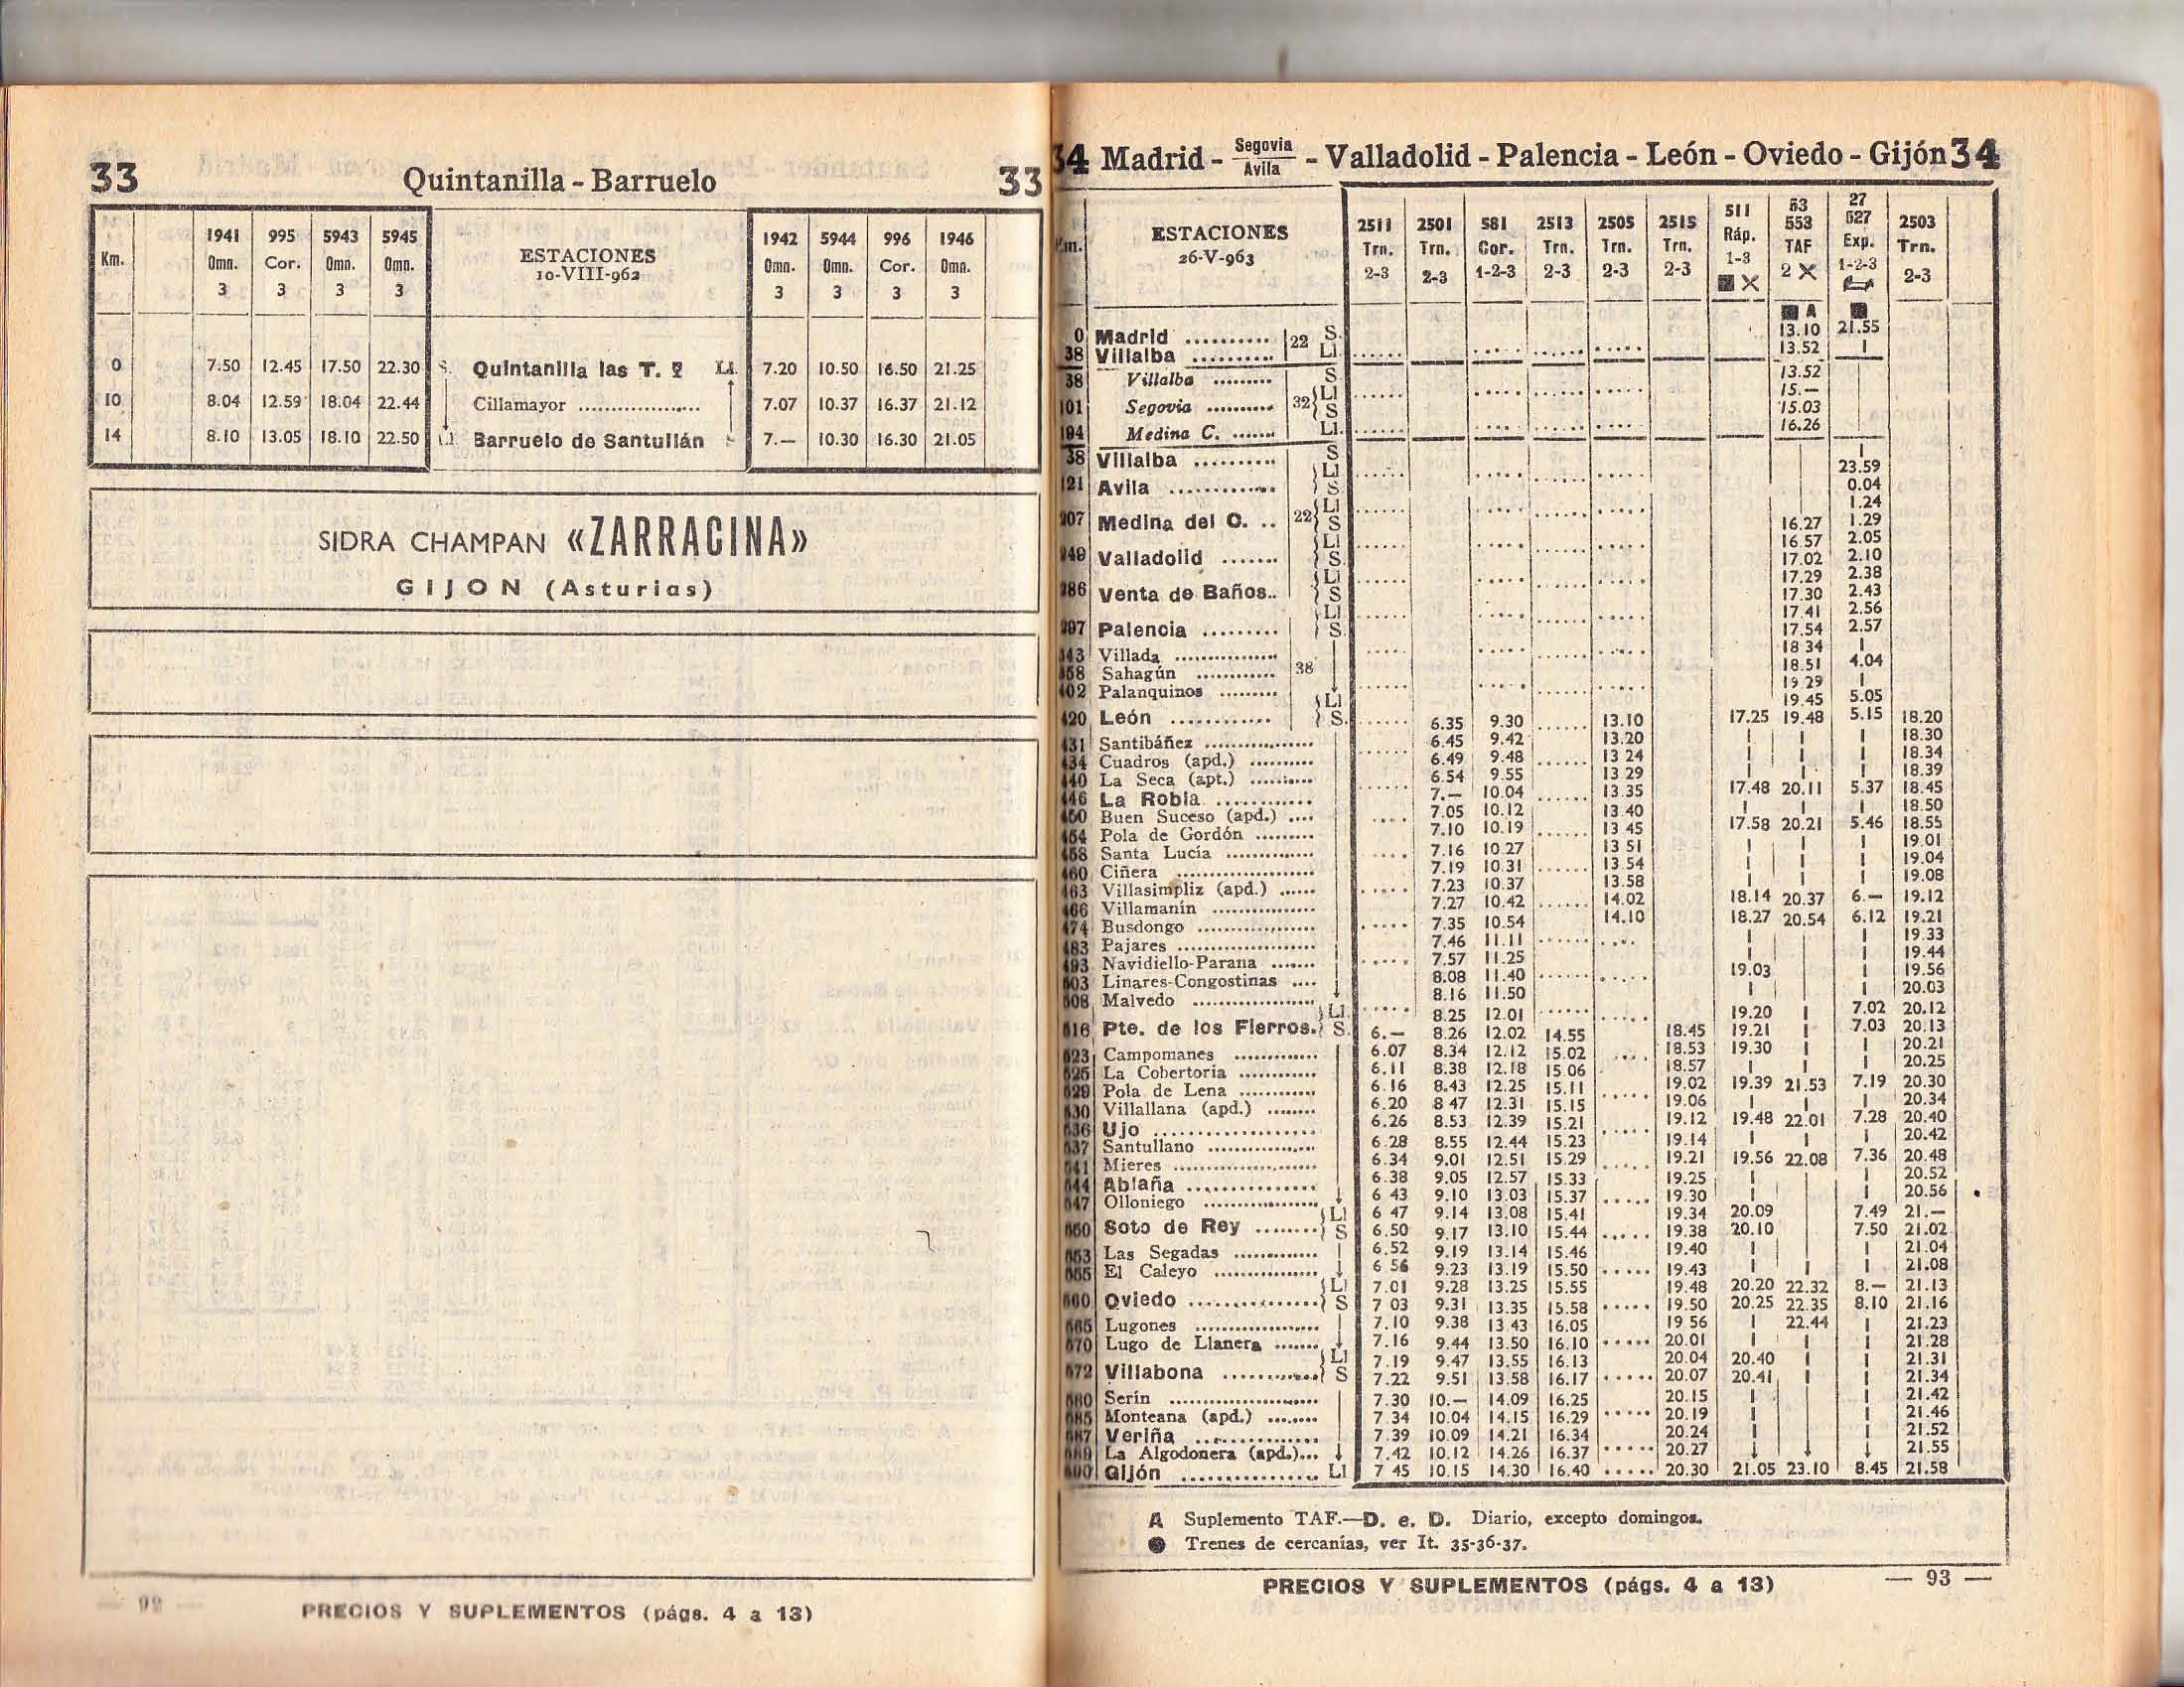 33 Quintanilla - Barruelo 33
Km. 1941 995 5943 5945 ESTACIONES 1942 5944 996 1946
Omn. Cor. Omn. Omn. 10-VIII-962 Omn. Omn. Cor. Omn.
3 3 3 3 3 3 3 3
0 7.50 12.45 17.50 22.30 S. Quintanilla las T. Ll. 7.20 10.50 16.50 21.25
10 8.04 12.59 18.04 22.44 Cillamayor 7.07 10.37 16.37 21.12
14 8.10 13.05 18.10 22.50 Ll Barruelo de Santullán S 7.— 10.30 16.30 21.05
SIDRA CHAMPAN «ZARRACINA»
GIJON (Asturias)
PRECIOS Y SUPLEMENTOS (págs. 4 a 13)
34 Madrid - Segovia / Avila - Valladolid - Palencia - León - Oviedo - Gijón 34
Km. ESTACIONES 26-V-963
2511 Trn. 2-3
2501 Trn. 2-3
581 Cor. 1-2-3
2513 Trn. 2-3
2505 Trn. 2-3
2515 Trn. 2-3
511 Ráp. 1-3
53 553 TAF 2
27 527 Exp. 1-2-3
2503 Trn. 2-3
A
0 Madrid 22 S. 13.10 21.55
38 Villalba Ll. 13.52
38 Villalba S 13.52
101 Segovia 32 Ll 15.—
S 15.03
194 Medina C. Ll. 16.26
38 Villalba S
121 Avila Ll 23.59
S 0.04
207 Medina del C. 22 Ll 1.24
S 16.27 1.29
249 Valladolid Ll 16.57 2.05
S. 17.02 2.10
286 Venta de Baños.. Ll 17.29 2.38
S 17.30 2.43
297 Palencia Ll 17.41 2.56
S. 17.54 2.57
343 Villada 18 34
358 Sahagún 38 18.51 4.04
402 Palanquinos 19 29
Ll 19.45 5.05
420 León S. 6.35 9.30 13.10 17.25 19.48 5.15 18.20
431 Santibáñez 6.45 9.42 13.20 18.30
434 Cuadros (apd.) 6.49 9.48 13 24 18.34
440 La Seca (apt.) 6.54 9.55 13 29 18.39
446 La Robla 7.— 10.04 13.35 17.48 20.11 5.37 18.45
450 Buen Suceso (apd.) 7.05 10.12 13.40 18.50
454 Pola de Gordón 7.10 10.19 13 45 17.58 20.21 5.46 18.55
458 Santa Lucía 7.16 10 27 13 51 19.01
460 Ciñera 7.19 10.31 13.54 19.04
463 Villasimpliz (apd.) 7.23 10.37 13.58 19.08
466 Villamanín 7.27 10.42 14.02 18.14 20.37 6.— 19.12
474 Busdongo 7.35 10.54 14.10 18.27 20.54 6.12 19.21
483 Pajares 7.46 11.11 19.33
493 Navidiello-Parana 7.57 11.25 19.44
503 Linares-Congostinas 8.08 11.40 19.03 19.56
508 Malvedo 8.16 11.50 20.03
Ll. 8.25 12.01 19.20 7.02 20.12
516 Pte. de los Fierros. S. 6.— 8.26 12.02 14.55 18.45 19.21 7.03 20.13
523 Campomanes 6.07 8.34 12.12 15.02 18.53 19.30 20.21
525 La Cobertoria 6.11 8.38 12.18 15.06 18.57 20.25
529 Pola de Lena 6.16 8.43 12.25 15.11 19.02 19.39 21.53 7.19 20.30
530 Villallana (apd.) 6.20 8 47 12.31 15.15 19.06 20.34
536 Ujo 6.26 8.53 12.39 15.21 19.12 19.48 22.01 7.28 20.40
537 Santullano 6.28 8.55 12.44 15.23 19.14 20.42
541 Mieres 6.34 9.01 12.51 15.29 19.21 19.56 22.08 7.36 20.48
544 Ablaña 6.38 9.05 12.57 15.33 19.25 20.52
547 Olloniego 6 43 9.10 13.03 15.37 19.30 20.56
Ll 6 47 9.14 13.08 15.41 19.34 20.09 7.49 21.—
550 Soto de Rey S 6.50 9.17 13.10 15.44 19.38 20.10 7.50 21.02
553 Las Segadas 6.52 9.19 13.14 15.46 19.40 21.04
555 El Caleyo 6 56 9.23 13.19 15.50 19.43 21.08
Ll 7.01 9.28 13.25 15.55 19.48 20.20 22.32 8.— 21.13
560 Oviedo S 7 03 9.31 13.35 15.58 19.50 20.25 22.35 8.10 21.16
565 Lugones 7.10 9.38 13 43 16.05 19 56 22.44 21.23
570 Lugo de Llanera 7.16 9.44 13.50 16.10 20.01 21.28
Ll 7.19 9.47 13.55 16.13 20.04 20.40 21.31
572 Villabona S 7.22 9.51 13.58 16.17 20.07 20.41 21.34
580 Serín 7.30 10.— 14.09 16.25 20.15 21.42
585 Monteana (apd.) 7.34 10.04 14.15 16.29 20.19 21.46
587 Veriña 7.39 10.09 14.21 16.34 20.24 21.52
589 La Algodonera (apd.)... 7.42 10.12 14.26 16.37 20.27 21.55
590 Gijón Ll 7 45 10.15 14.30 16.40 20.30 21.05 23.10 8.45 21.58
A Suplemento TAF.—D. e. D. Diario, excepto domingos.
Trenes de cercanías, ver It. 35-36-37.
PRECIOS Y SUPLEMENTOS (págs. 4 a 13) — 93 —